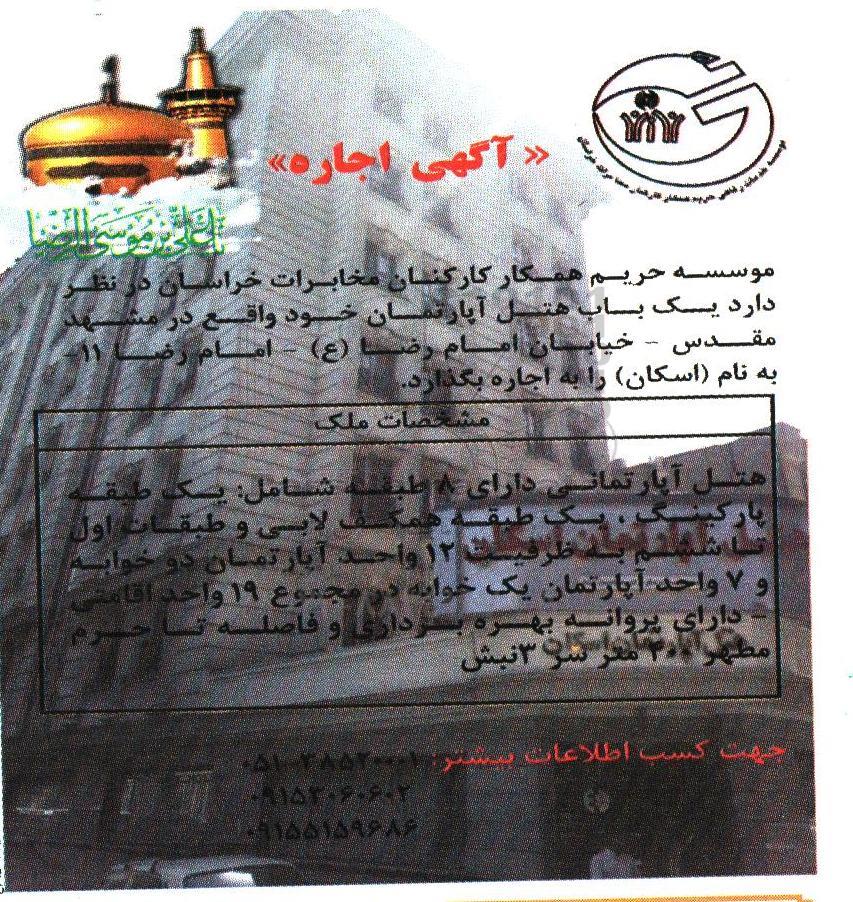 « آگهی اجاره»
یا علی بن موسی الرضا
موسسه حریم همکار کارکنان مخابرات خراسان در نظر
دارد یک باب هتل آپارتمان خود واقع در مشهد
مقدس - خیابان امام رضا (ع) - امام رضا ۱۱-
به نام (اسکان) را به اجاره بگذارد.
مشخصات ملک
هتل آپارتمانی دارای ۸ طبقه شامل: یک طبقه
پارکینگ ، یک طبقه همکف لابی و طبقات اول
تا ششم به ظرفیت ۱۲ واحد آپارتمان دو خوابه
و ۷ واحد آپارتمان یک خوابه در مجموع ۱۹ واحد اقامتی
- دارای پروانه بهره برداری و فاصله تا حرم
مطهر ۳۰۰ متر سر ۳نبش
جهت کسب اطلاعات بیشتر: ۳۸۵۲۰۰۰۱-۰۵۱
۰۹۱۵۳۰۶۰۶۰۲
۰۹۱۵۵۱۵۹۶۸۶